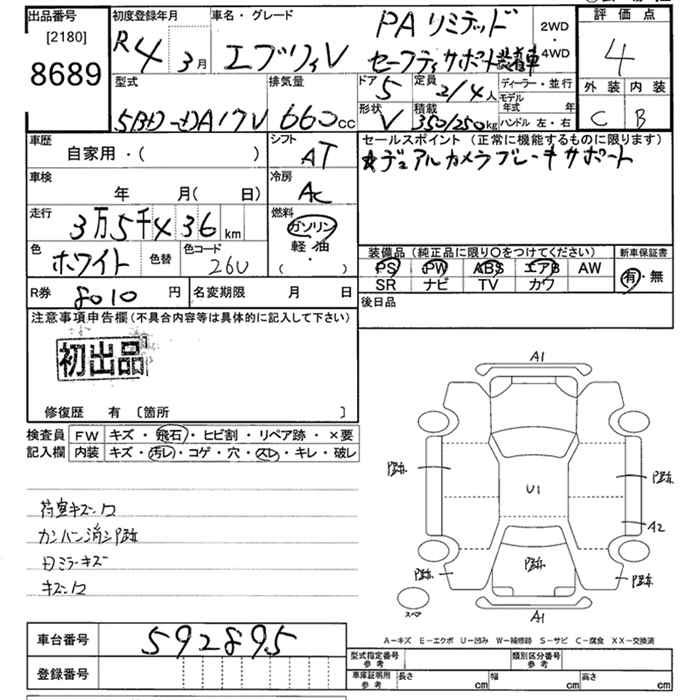 出品番号
[2180]
8689
初度登録年月
R4 3月
車名・グレード
エブリィV
PA リミテッド
セーフティサポート装着車
2WD
・
4WD
評価点
4
外装 内装
C B
型式
5BD-DA17V
排気量
660cc
ドア
5
定員
2/4人
形状
V
積載
350/250kg
ディーラー・並行
モデル年式 年
ハンドル 左・右
車歴
自家用・( )
シフト
AT
車検
年 月( 日)
冷房
AC
走行
3万5千436km
燃料
ガソリン
軽・油
( ・ )
色
ホワイト
色替
色コード
26U
R券 8010円
名変期限 月 日
セールスポイント(正常に機能するものに限ります)
★デュアルカメラブレーキサポート
装備品(純正品に限り○をつけてください)
PS PW ABS エアB AW
SR ナビ TV カワ
新車保証書
有・無
後日品
注意事項申告欄(不具合内容等は具体的に記入して下さい)
初出品
修復歴 有 〔箇所 〕
検査員記入欄
FW キズ・飛石・ヒビ割・リペア跡・×要
内装 キズ・汚レ・コゲ・穴・スレ・キレ・破レ
荷室キズ凹
カンバン消シ跡
日ミラーキズ
キズ凹
A1
跡
跡
U1
A2
跡
跡
跡
スペア
A1
A-キズ E-エクボ U-凹み W-補修跡 S-サビ C-腐食 XX-交換済
車台番号 592895
登録番号
型式指定番号
参考
類別区分番号
参考
車庫証明用
参考
長さ cm 幅 cm 高さ cm